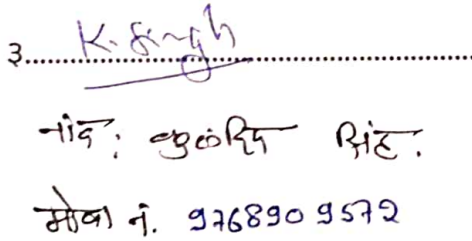 ३. K. Singh
नांव : कुलदिप सिंह.
मोबा नं. 9768909572